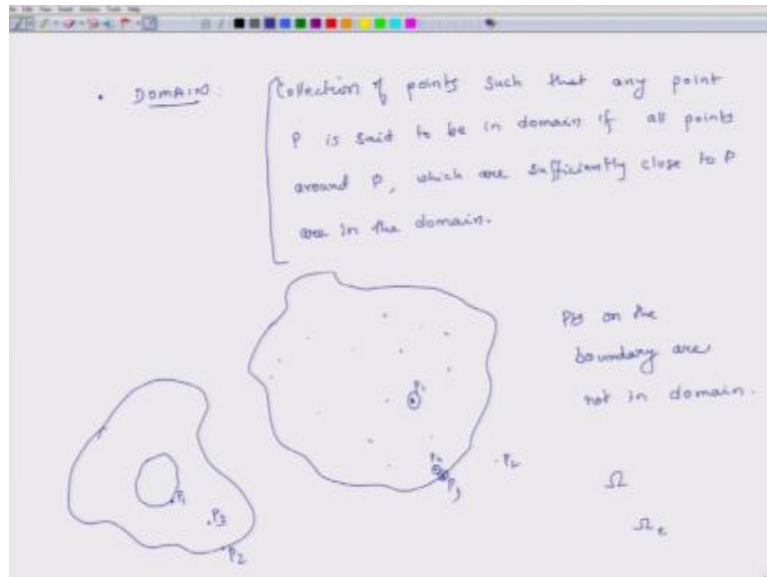 • DOMAIN:
Collection of points such that any point
P is said to be in domain if all points
around P, which are sufficiently close to P
are in the domain.
Pts on the
boundary are
not in domain.
P₁
P₂
P₃
P₂
P₁
P₃
P₂
Ω
Ωₑ